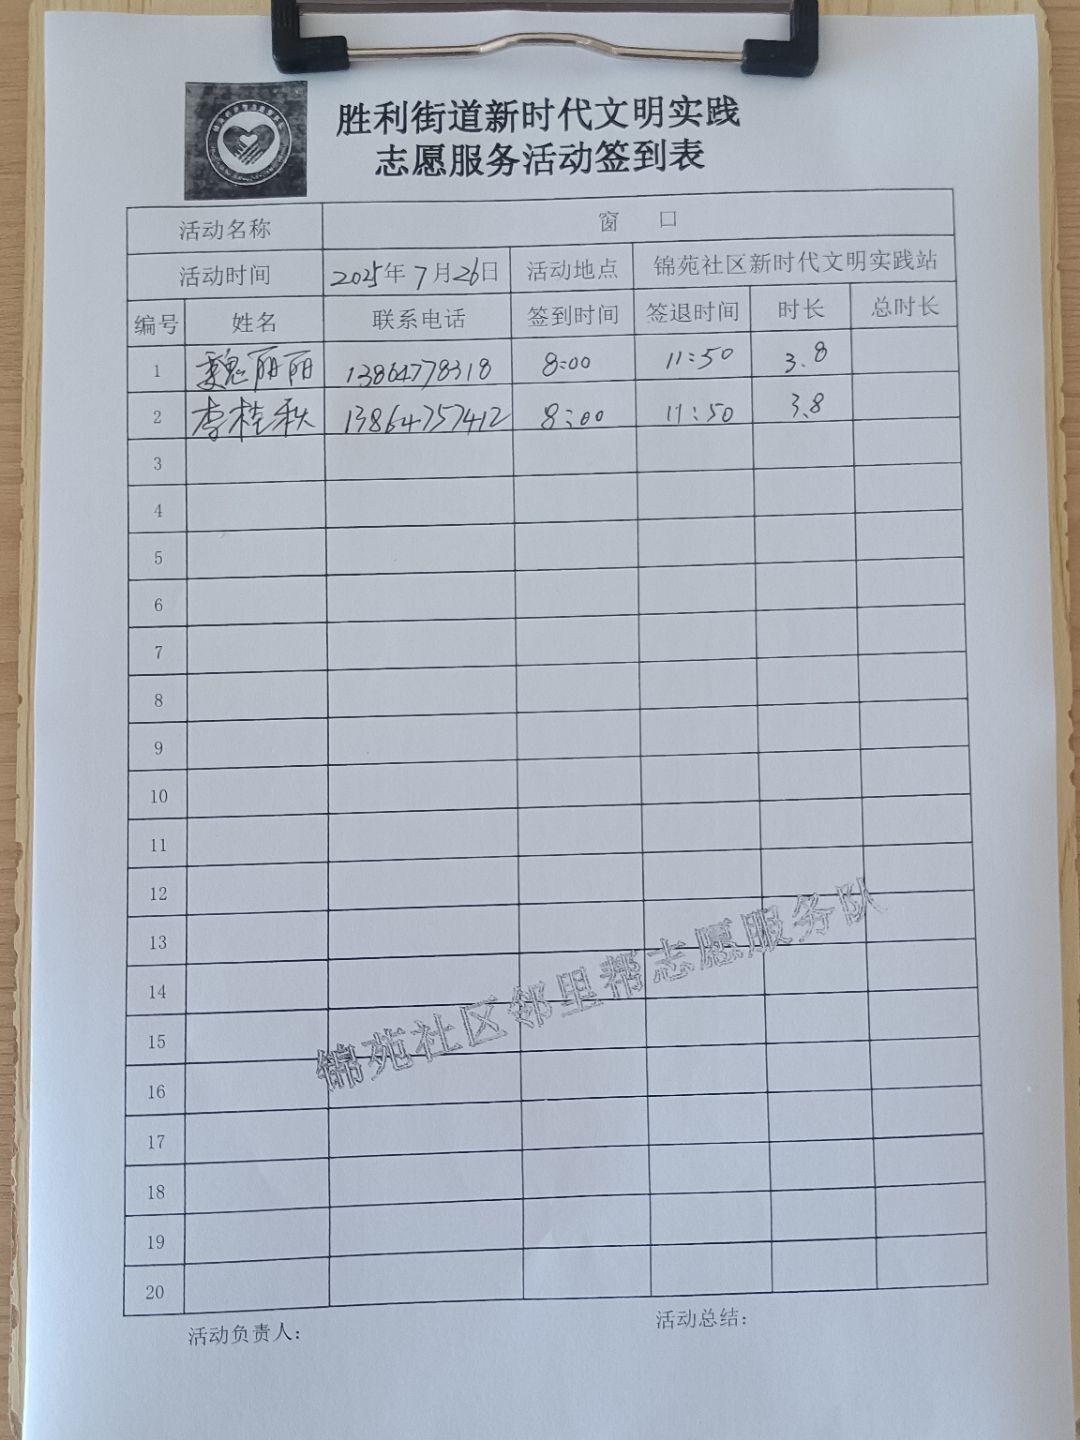 胜利街道新时代文明实践
志愿服务活动签到表
活动名称 窗 口
活动时间 2025年7月26日 活动地点 锦苑社区新时代文明实践站
编号 姓名 联系电话 签到时间 签退时间 时长 总时长
1 魏丽丽 13864778318 8:00 11:50 3.8
2 李桂秋 13864757412 8:00 11:50 3.8
3
4
5
6
7
8
9
10
11
12
13
14
15
16
17
18
19
20
锦苑社区邻里帮志愿服务队
活动负责人： 活动总结：